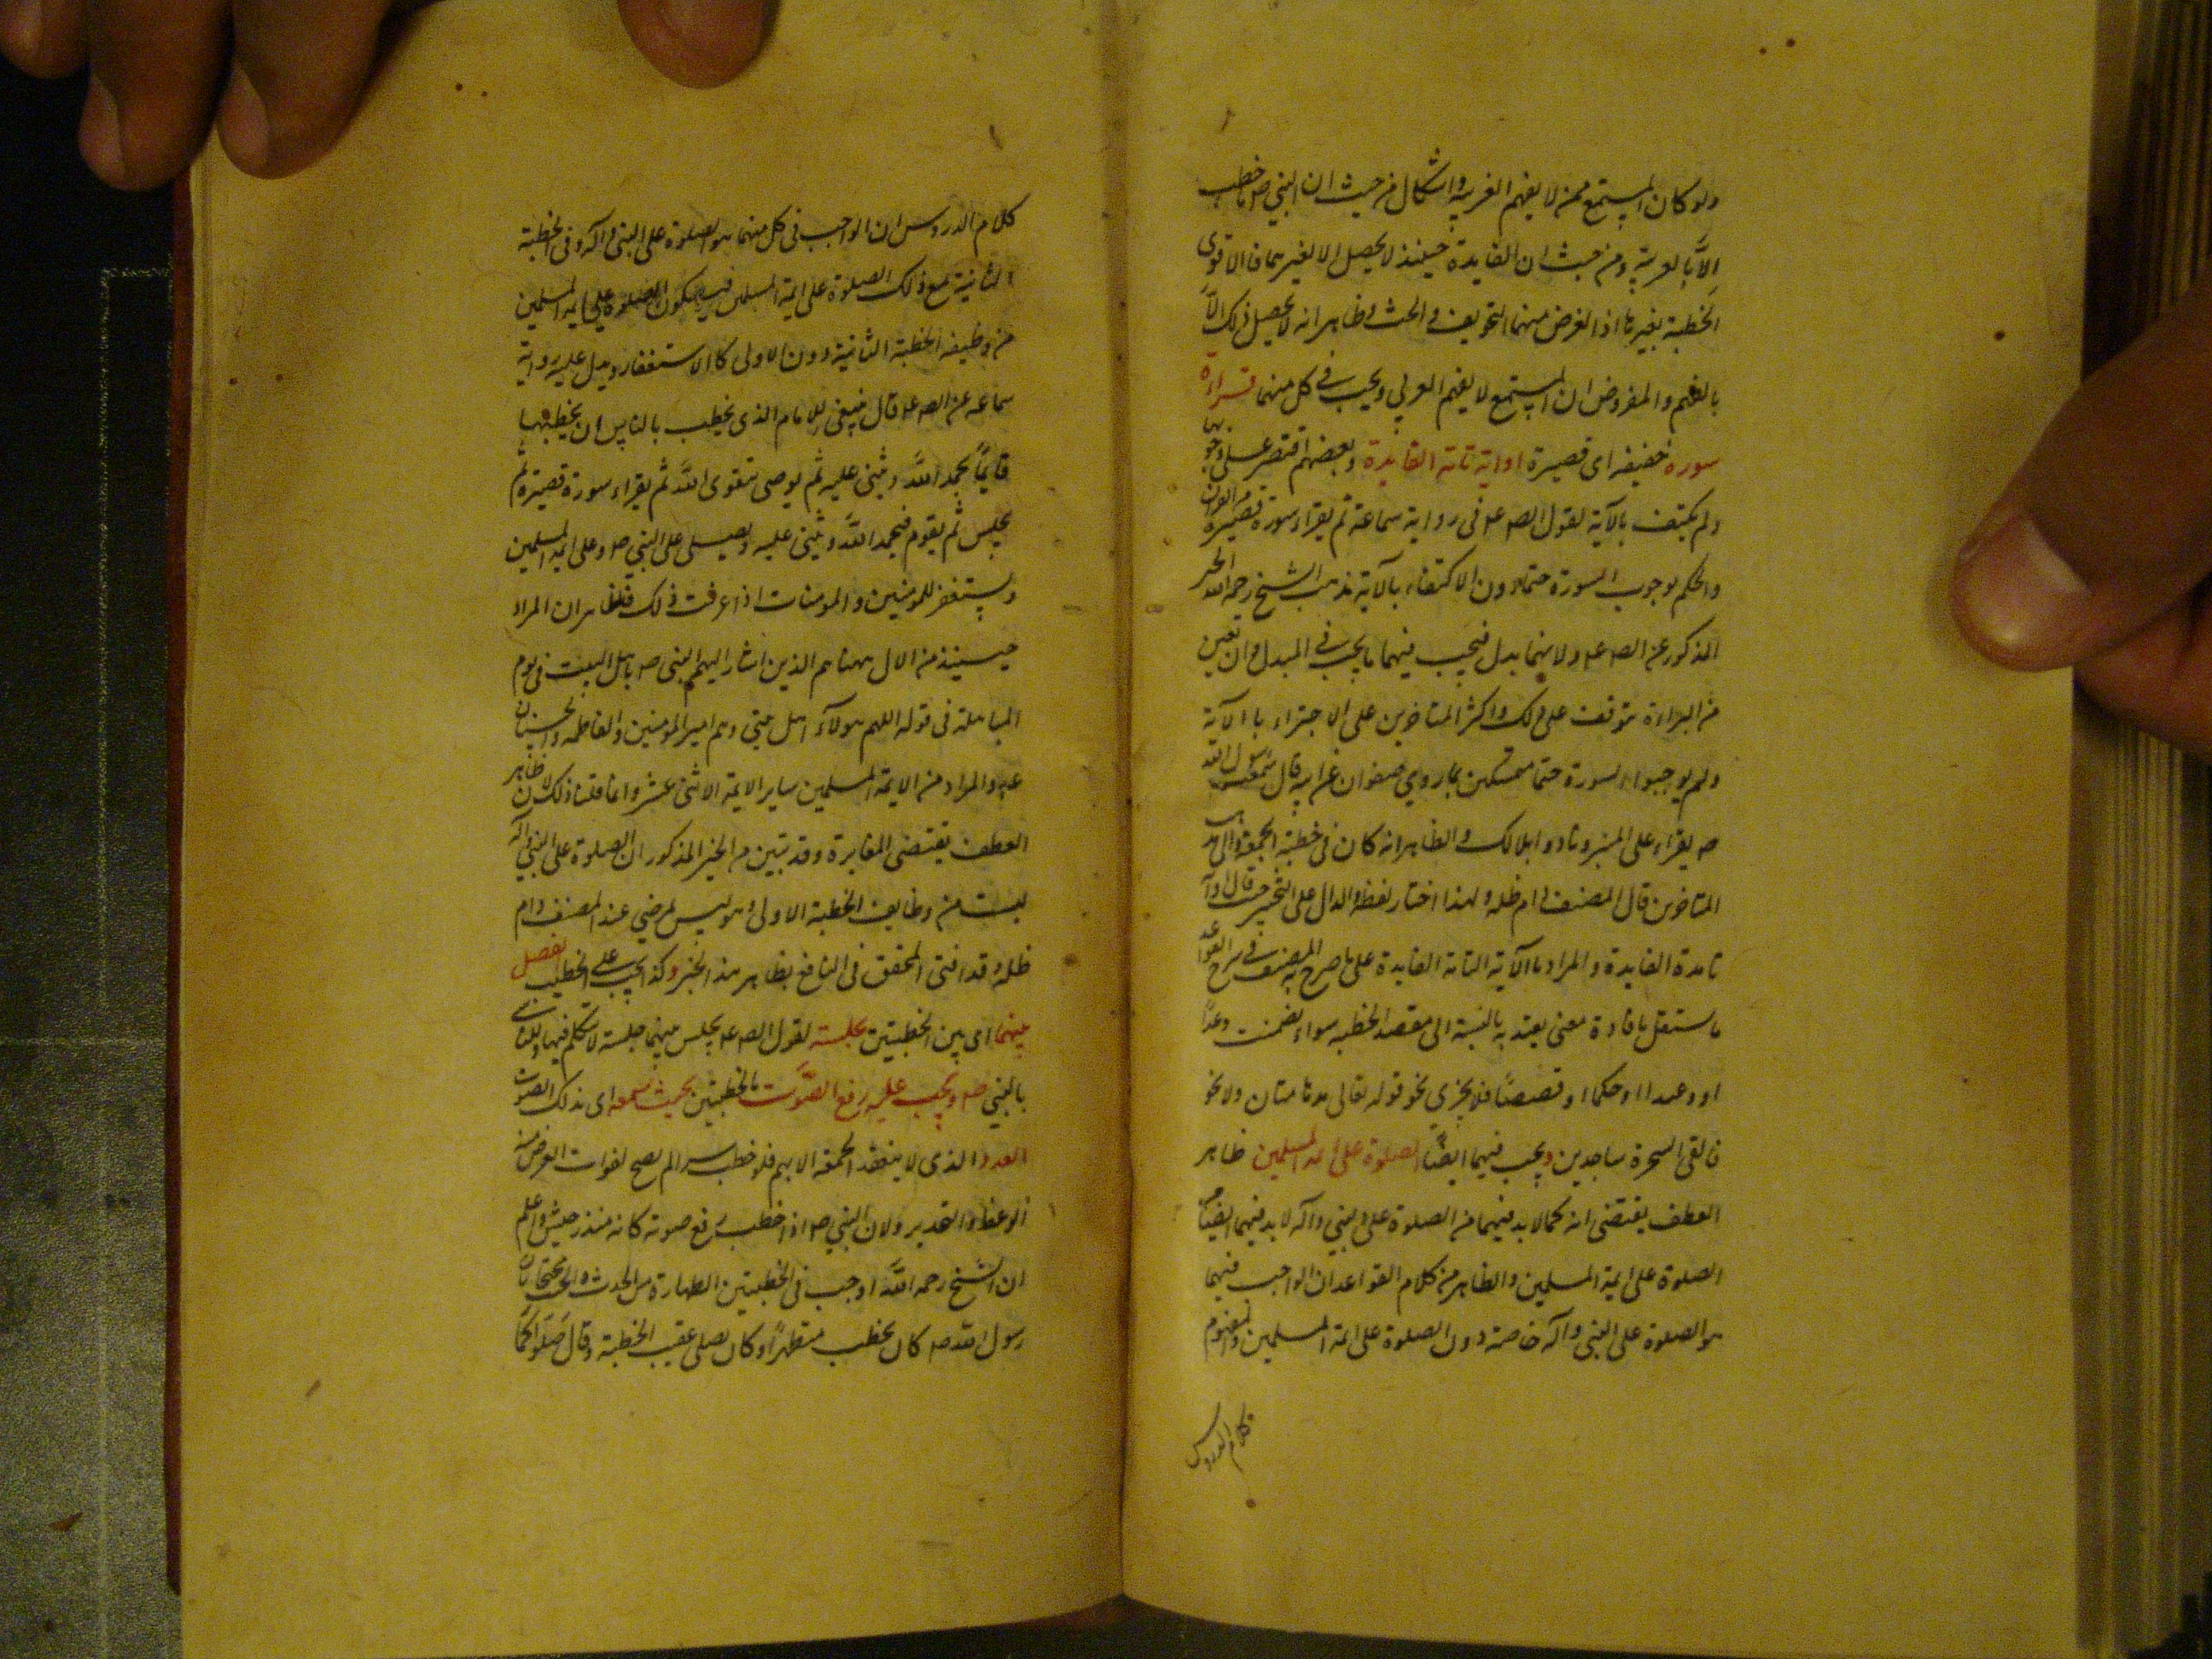 ولو كان المستمع ممن لا يفهم العربية واشكال من حيث ان النبي ص ما خطب
الّا بالعربية ومن حيث ان الفايدة حينئذ لا يحصل الا لغيرهما فالاقوى
الخطبة بغيرها اذ الغرض منهما التخويف والحث وظاهر انه لا يحصل ذلك الّا
بالفهم والمفروض ان المستمع لا يفهم العربي ويجب في كل منهما قراءة
سورة خفيفه اى قصيرة او اية تامة الفايدة وبعضهم اقتصر على وجوبها
ولم يكتف بالآية لقول الص ع في رواية سماعة ثم يقراء سورة قصيرة من القران
والحكم بوجوب السورة حتما دون الاكتفاء بالآية مذهب الشيخ رحمه الله الخبر
المذكور عن الص ع ولانهما بدل فيجب فيهما ما يجب في المبدل وان يقين
من البراءة متوقف على ذلك واكثر المتاخرين على الاجتزاء با الآية
ولم يوجبوا السورة حتما متمسكين بما روي صفوان عن ابيه قال سمعت رسول الله
ص يقراء على المنبر ونادوا يا مالك والظاهر انه كان في خطبة الجمعة والى مذهب
المتاخرين قال المصنف دام ظله ولهذا اختار لفظه او الدال على التخيير حيث قال او آية
تامة الفايدة والمراد باالآية التامة الفايدة على ما صرح به المصنف في شرح القواعد
ما ستقل بافادة معنى يعتد به بالنسبة الى مقصد الخطبه سواء تضمنت وعدًا
او وعيدا او حكما او قصصًا فلا يجزي نحو قوله تعالى مدهامتان ولا نحو
فالقى السحرة ساجدين ويجب فيهما ايضًا الصلوة على ائمة المسلمين ظاهر
العطف يقتضى انه كما لابد فيهما من الصلوة على النبي وآله لابد فيهما ايضًا من
الصلوة على ايمة المسلمين والظاهر من كلام القواعد ان الواجب فيهما
هو الصلوة على النبي وآله خاصة دون الصلوة على ائمة المسلمين والمفهوم
كلام الدروس
كلام الدروس ان الواجب في كل منهما هو الصلوة على النبي وآله وفي الخطبة
الثانية مع ذلك الصلوة على ايمة المسلمين فيكون الصلوة على ايمة المسلمين
من وظيفه الخطبة الثانية دون الاولى كا الاستغفار ويدل عليه رواية
سماعه عن الص ع قال ينبغى للامام الذى يخطب بالناس ان يخطبها
قايمًا يحمد اللّه ويثنى عليه ثم يوصى بتقوى اللّه ثم يقراء سورة قصيرة ثم
يجلس ثم يقوم فيحمد اللّه ويثنى عليه ويصلى على النبي ص وعلى ايمة المسلمين
ويستغفر للمومنين والمومنات اذا عرفت ذلك فالظاهر ان المراد
حينئذ من الال ههنا هم الذين اشار اليهم النبي ص باهل البيت فى يوم
المباهلة فى قوله اللهم هولآء اهل بيتي وهم امير المومنين والفاطمه والحسنان
ع والمراد من الايمة المسلمين ساير الايمة الاثنى عشر وانما قلنا ذلك لان ظاهر
العطف يقتضى المغايرة وقد تبين من الخبر المذكور ان الصلوة على النبي وآله
ليست من وظايف الخطبة الاولى وهو ليس لمرضي عند المصنف دام
ظله وقد افتى المحقق فى النافع بظاهر هذا الخبر وكذا يجب على الخطيب الفصل
بينهما اى بين الخطبتين بجلسة لقول الص ع يجلس بينهما جلسة لا تتكلم فيها وللتاسى
بالنبي ص ويجب عليه رفع الصَّوت بالخطبتين بحيث يسمعه اى بذلك الصوت
العدد الذى لا ينعقد الجمعة الا بهم فلو خطب سرا لم يصح لفوات الغرض من
الوعظ والتحدير ولان النبي ص اذا خطب يرفع صوته كانه منذر جيش واعلم
ان الشيخ رحمه اللّه اوجب فى الخطبتين الطهارة من الحدث والخبث محتجا بان
رسول اللّه ص كان يخطب متطهرًا وكان يصلى عقيب الخطبة وقال صَلّوا كما